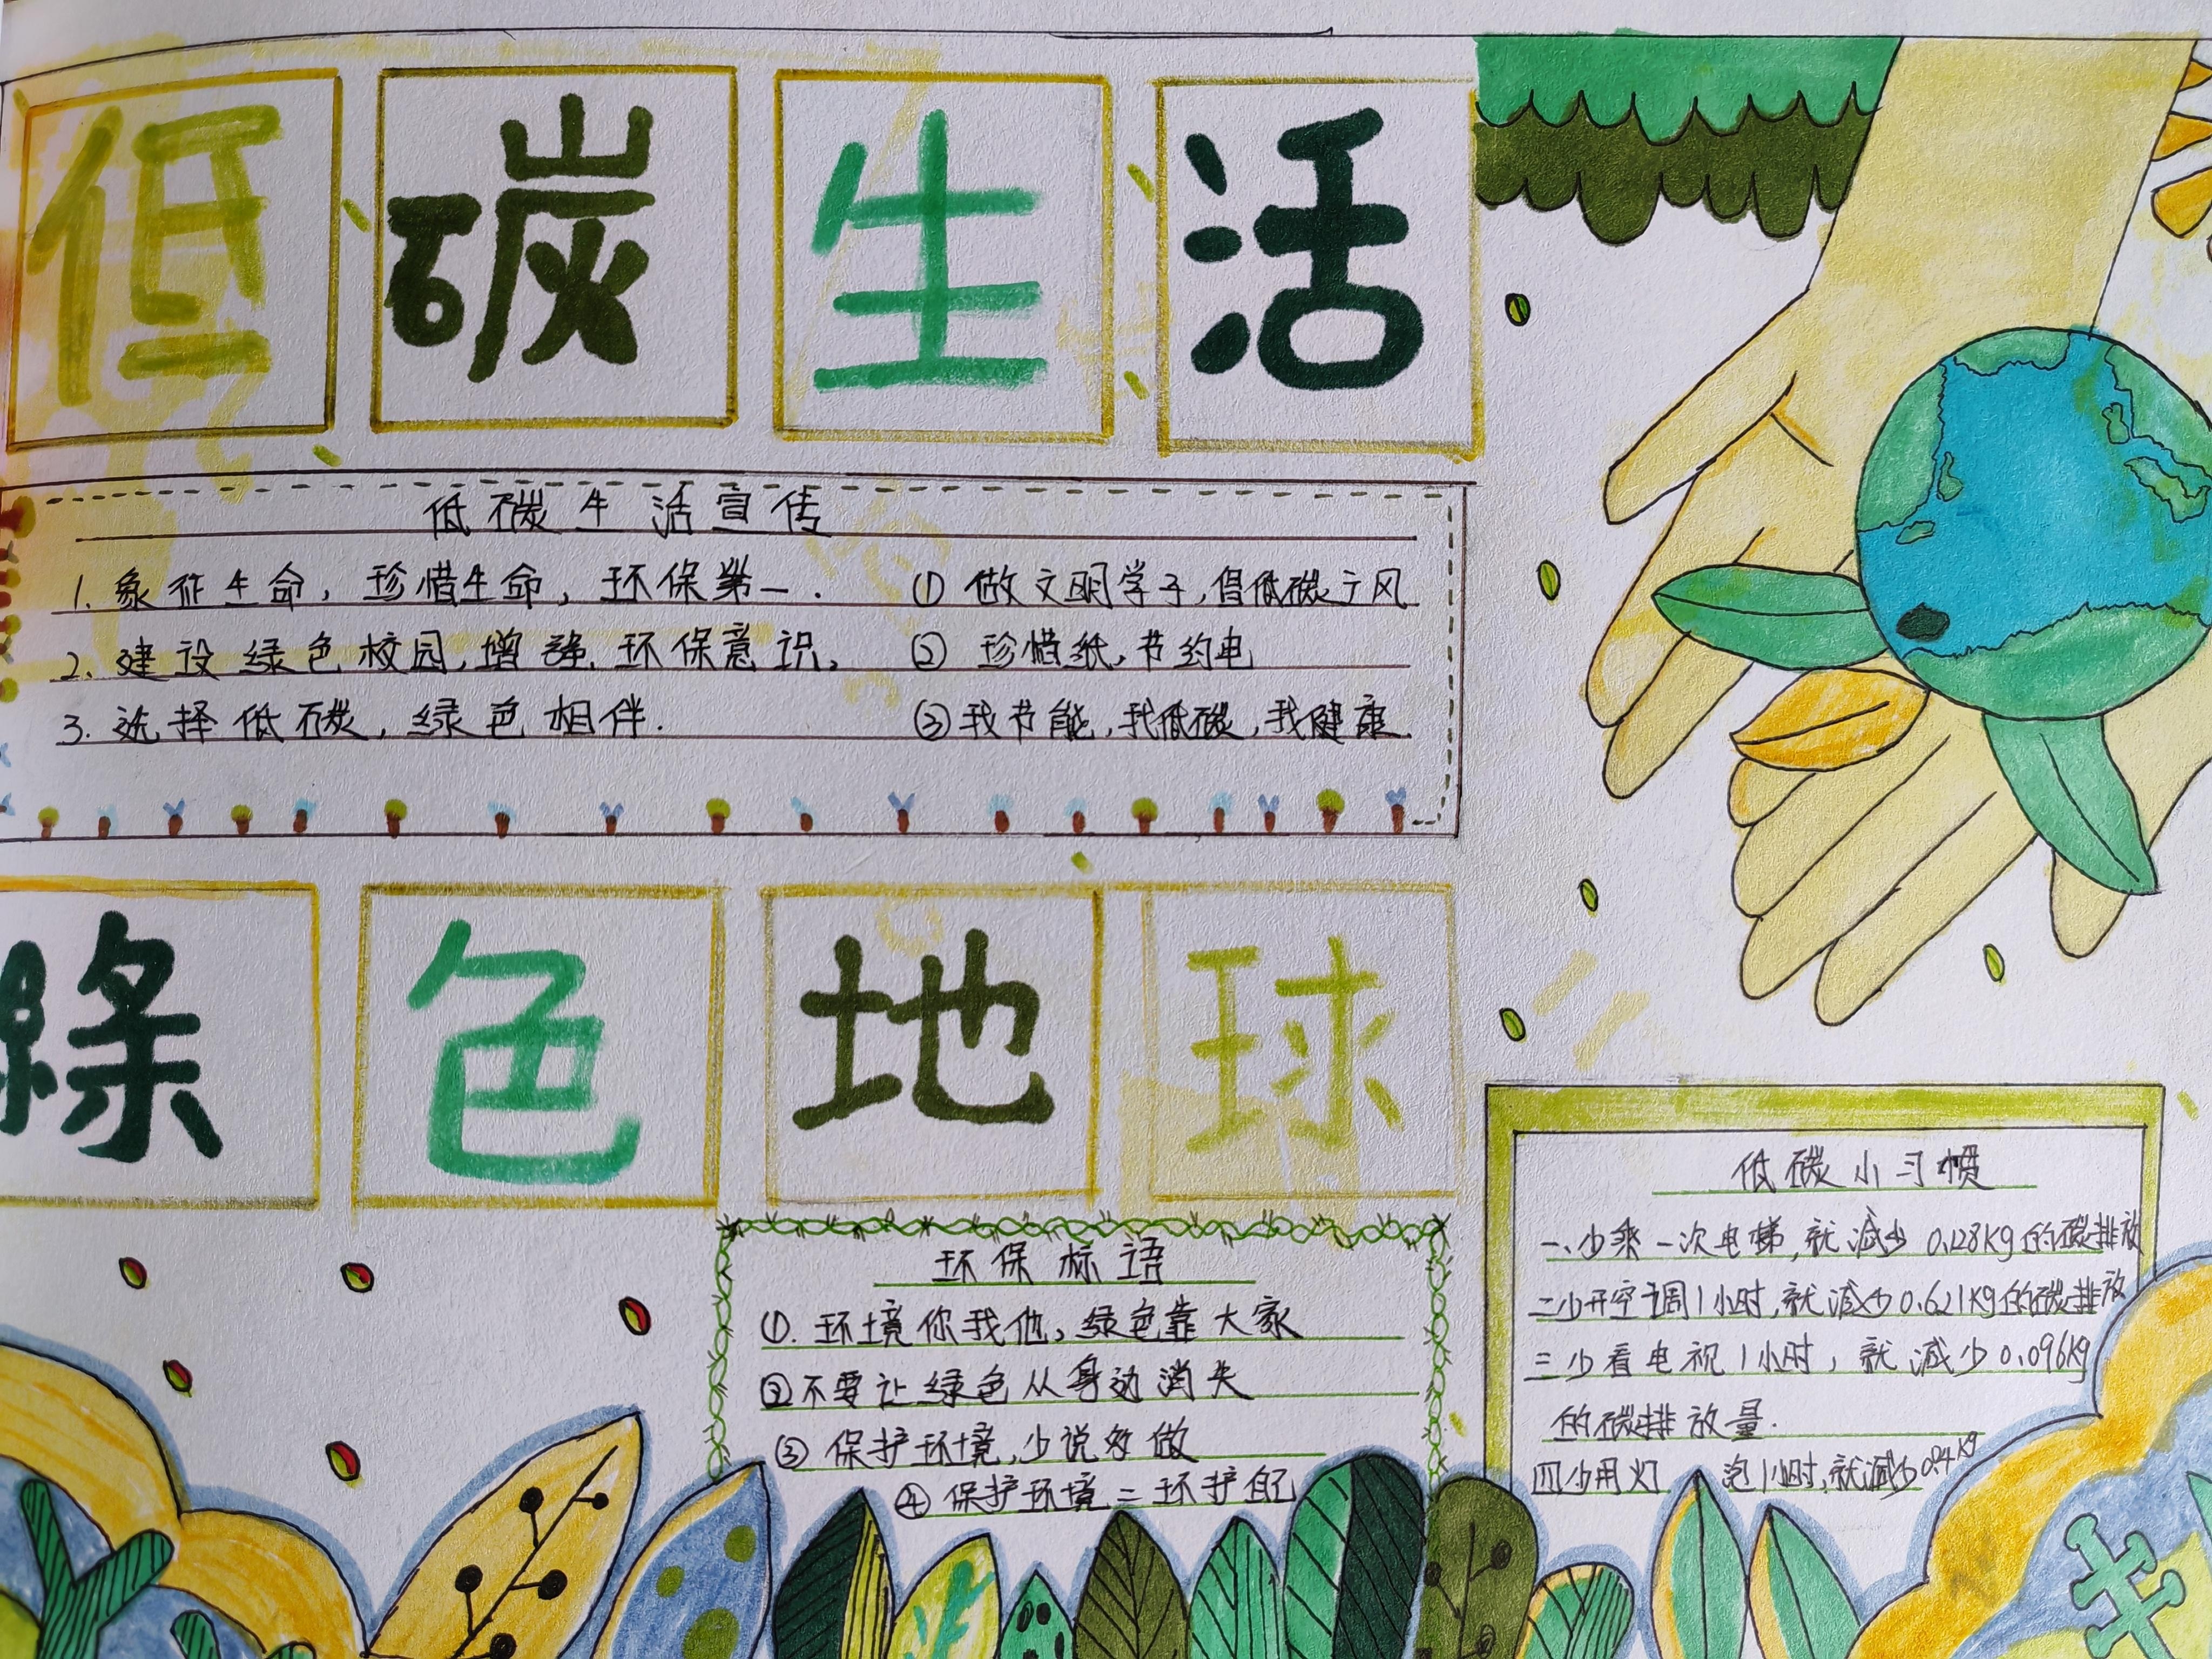 低碳生活
低碳生活宣传
1. 象征生命，珍惜生命，环保第一.
2. 建设绿色校园，增强环保意识，
3. 选择低碳，绿色相伴.
① 做文明学子，倡低碳之风
② 珍惜纸，节约电
③ 我节能，我低碳，我健康.
綠色地球
环保标语
①. 环境你我他，绿色靠大家
②不要让绿色从身边消失
③ 保护环境，少说多做
④ 保护环境=环护自己
低碳小习惯
一、少乘一次电梯，就减少 0.128Kg的碳排放
二少开空调1小时，就减少0.621Kg的碳排放
三少看电视1小时，就减少0.096Kg
的碳排放量.
四少用灯 泡1小时，就减少0.04Kg